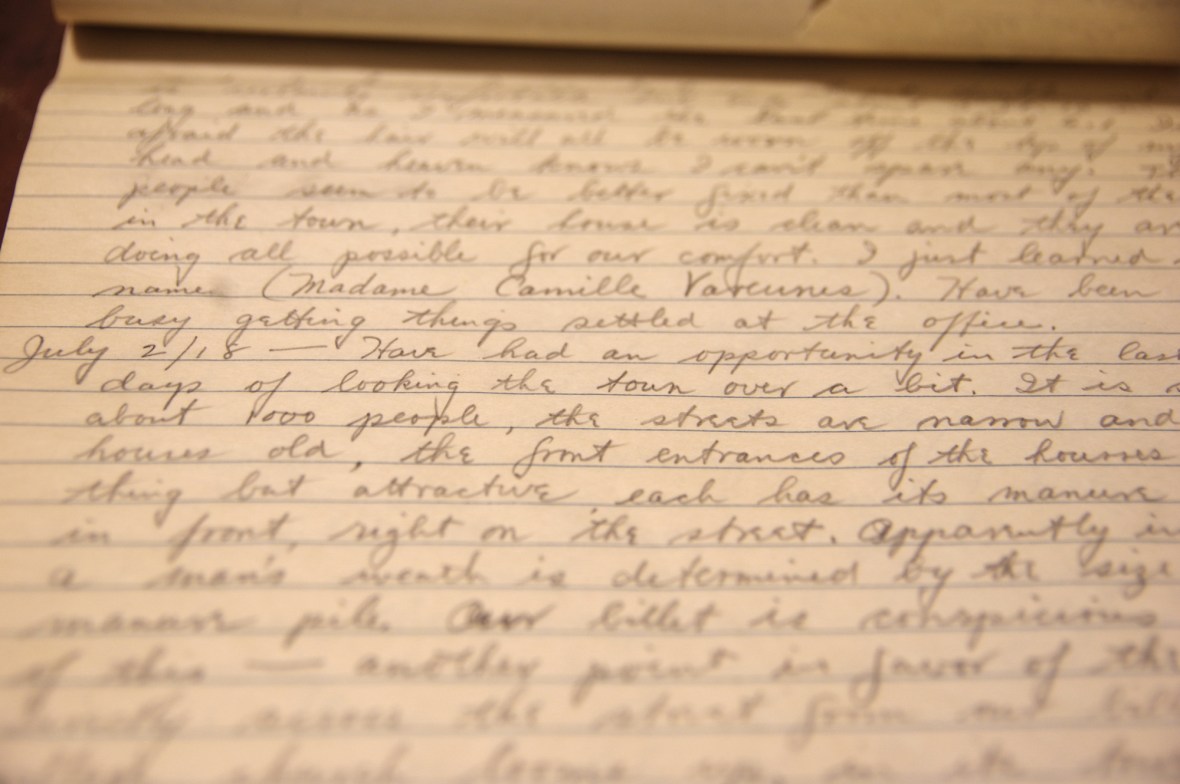 long and he measured the
afraid the hair will all be worn off the top of
head and heaven knows I can't spare any.
people seem to be better fixed than most of the
in the town, their house is clean and they
doing all possible for our comfort. I just learned
name (Madame Camille Varennes). Have been
busy getting things settled at the office.
July 2/18 — Have had an opportunity in the
days of looking the town over a bit. It is
about 1000 people, the streets are narrow and
houses old, the front entrances of the houses
thing but attractive each has its manure
in front, right on the street. Apparently in
a man's wealth is determined by the size
manure pile. Our billet is conspicuous
of this — another point in favor of
across the street from our
church looms up in its